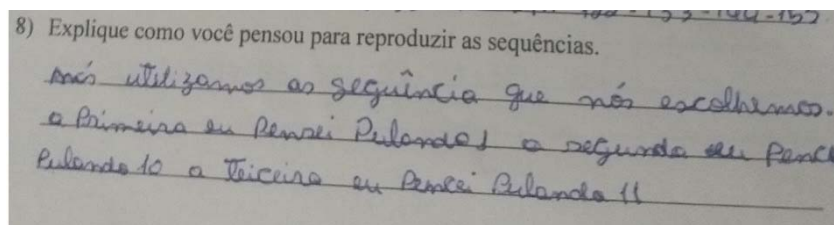 133-144-152
8) Explique como você pensou para reproduzir as sequências.
nós utilizamos as sequência que nós escolhemos.
a Primeira eu Pensei Pulando 1 a segunda eu Pence
Pulando 10 a Teiceira eu Pencei Pulando 11